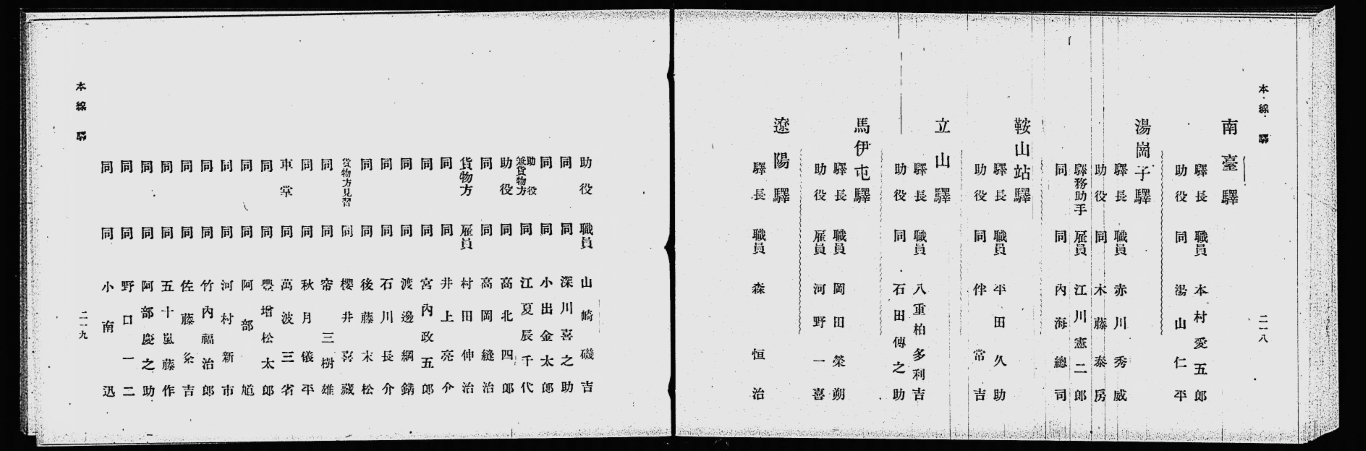 本線驛
二一八
南臺驛
驛長 職員 本村愛五郎
助役 同 湯山仁平
湯崗子驛
驛長 職員 赤川秀威
助役 同 木藤泰房
驛務助手 雇員 江川憲二郎
同 同 內海總司
鞍山站驛
驛長 職員 平田久助
助役 同 伴常吉
立山驛
驛長 職員 八重柏多利吉
助役 同 石田傳之助
馬伊屯驛
驛長 職員 岡田榮朔
助役 雇員 河野一喜
遼陽驛
驛長 職員 森恒治
本線驛
二一九
助役 職員 山崎磯吉
同 同 深川喜之助
同 同 小出金太郎
助役兼貨物方 同 江夏辰千代
助役 同 高北四郎
同 同 高岡縫治
貨物方 雇員 村田伸治
同 同 井上亮介
同 同 宮內政五郎
同 同 渡邊綱錆
同 同 石川長介
同 同 後藤末松
貨物方見習 同 櫻井喜藏
同 同 三樹雄
車掌 同 萬波三省
同 同 秋月儀平
同 同 豐增松太郎
同 同 阿部
同 同 河村新市
同 同 竹內福治郎
同 同 佐藤粂吉
同 同 五十嵐藤作
同 同 阿部慶之助
同 同 野口一二
同 同 小南迅